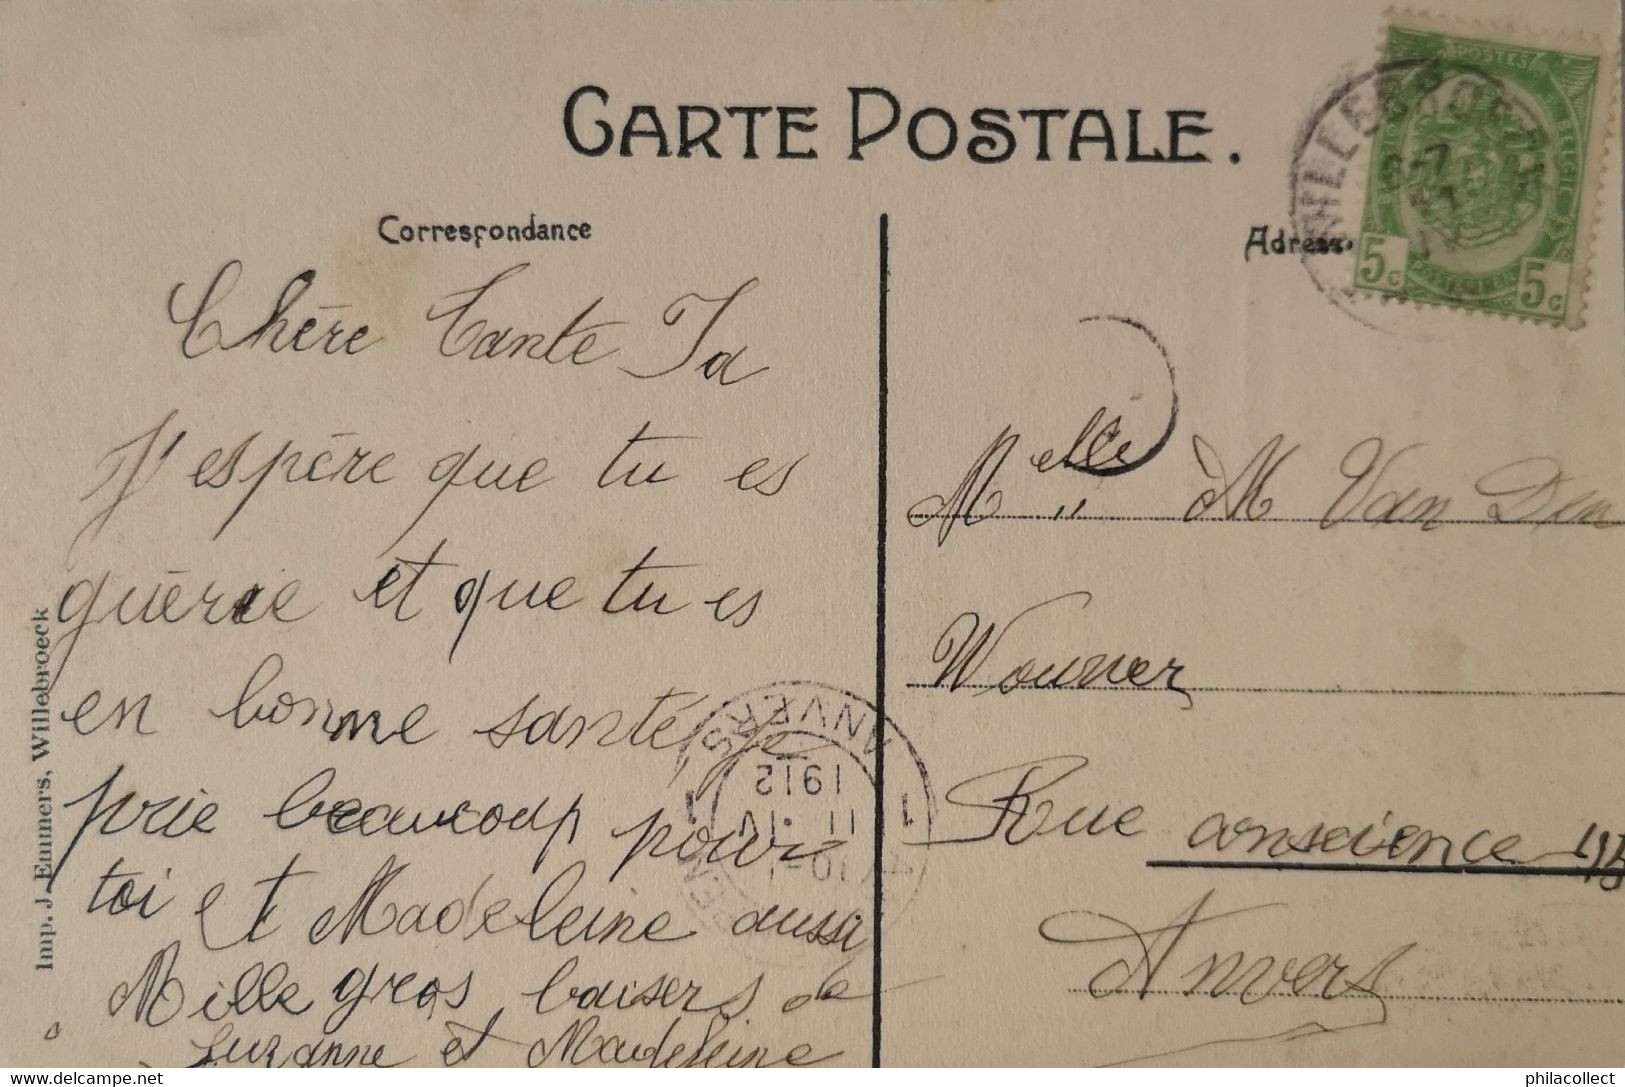 CARTE POSTALE.
Correspondance
Adresse
POSTES
BELGIE
5c 5c
Chère Tante Ja
J'espère que tu es
guérie et que tu es
en bonne santé je
prie beaucoup pour
toi et Madeleine aussi
Mille gros baisers de
Suzanne et Madeleine
Melle M Van Den
Wouwer
Rue Conscience
Anvers
ANVERS
1 11 IV 1
1912
Imp. J. Emmers, Willebroeck
philacollect